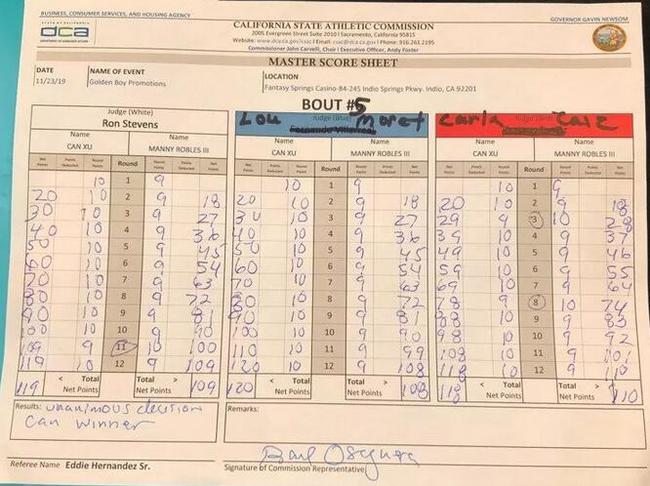 BUSINESS, CONSUMER SERVICES, AND HOUSING AGENCY
GOVERNOR GAVIN NEWSOM
STATE OF CALIFORNIA
dca
DEPARTMENT OF CONSUMER AFFAIRS
CALIFORNIA STATE ATHLETIC COMMISSION
2005 Evergreen Street Suite 2010 | Sacramento, California 95815
Website: www.dca.ca.gov/csac | Email: csac@dca.ca.gov | Phone: 916.263.2195
Commissioner John Carvelli, Chair | Executive Officer, Andy Foster
MASTER SCORE SHEET
DATE
11/23/19
NAME OF EVENT
Golden Boy Promotions
LOCATION
Fantasy Springs Casino-84-245 Indio Springs Pkwy. Indio, CA 92201
BOUT #5
Judge (White)
Ron Stevens
Name Name
CAN XU MANNY ROBLES III
Net Points Points Deducted Round Points Round Round Points Points Deducted Net Points
10 1 9
20 10 2 9 18
30 10 3 9 27
40 10 4 9 36
50 10 5 9 45
60 10 6 9 54
70 10 7 9 63
80 10 8 9 72
90 10 9 9 81
100 10 10 9 90
109 9 11 10 100
119 10 12 9 109
119 < Total Net Points Total > Net Points 109
Judge (Blue)
Lou Moret
Name Name
CAN XU MANNY ROBLES III
Net Points Points Deducted Round Points Round Round Points Points Deducted Net Points
10 1 9
20 10 2 9 18
30 10 3 9 27
40 10 4 9 36
50 10 5 9 45
60 10 6 9 54
70 10 7 9 63
80 10 8 9 72
90 10 9 9 81
100 10 10 9 90
110 10 11 9 99
120 10 12 9 108
120 < Total Net Points Total > Net Points 108
Carla Caiz
Name Name
CAN XU MANNY ROBLES III
Net Points Points Deducted Round Points Round Round Points Points Deducted Net Points
10 1 9
20 10 2 9 18
29 9 3 10 28
39 10 4 9 37
49 10 5 9 46
59 10 6 9 55
69 10 7 9 64
78 9 8 10 74
88 10 9 9 83
98 10 10 9 92
108 10 11 9 101
118 10 12 9 110
118 < Total Net Points Total > Net Points 110
Results: unanimous decision
Can winner
Remarks:
Referee Name Eddie Hernandez Sr.
Signature of Commission Representative